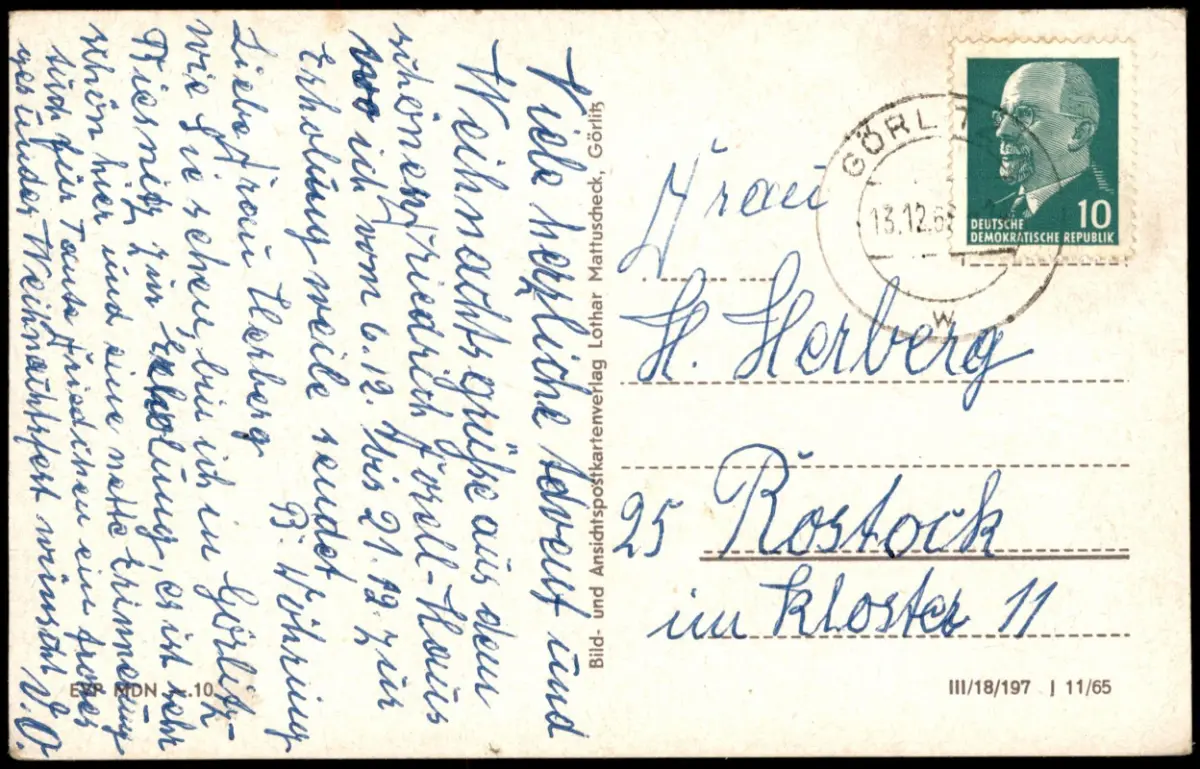 Viele herzliche Advent und
Weihnachtsgrüße aus dem
schönen Friedrich Zorell-Haus
wo ich vom 6.12. bis 21.12. zur
Erholung weile sendet
B. Wöhring
Liebe Frau Herberg
wie Sie sehen, bin ich in Görlitz-
Biesnitz zur Erholung, es ist sehr
schön hier und eine nette Erinnerung
für Tante Friedchen ein frohes
gesundes Weihnachtsfest wünscht
EVP MDN -.10
Bild- und Ansichtspostkartenverlag Lothar Mattuscheck, Görlitz
GÖRLITZ
13.12.6
w
DEUTSCHE
DEMOKRATISCHE REPUBLIK
10
Frau
H. Herberg
25 Rostock
im Kloster 11
III/18/197 J 11/65